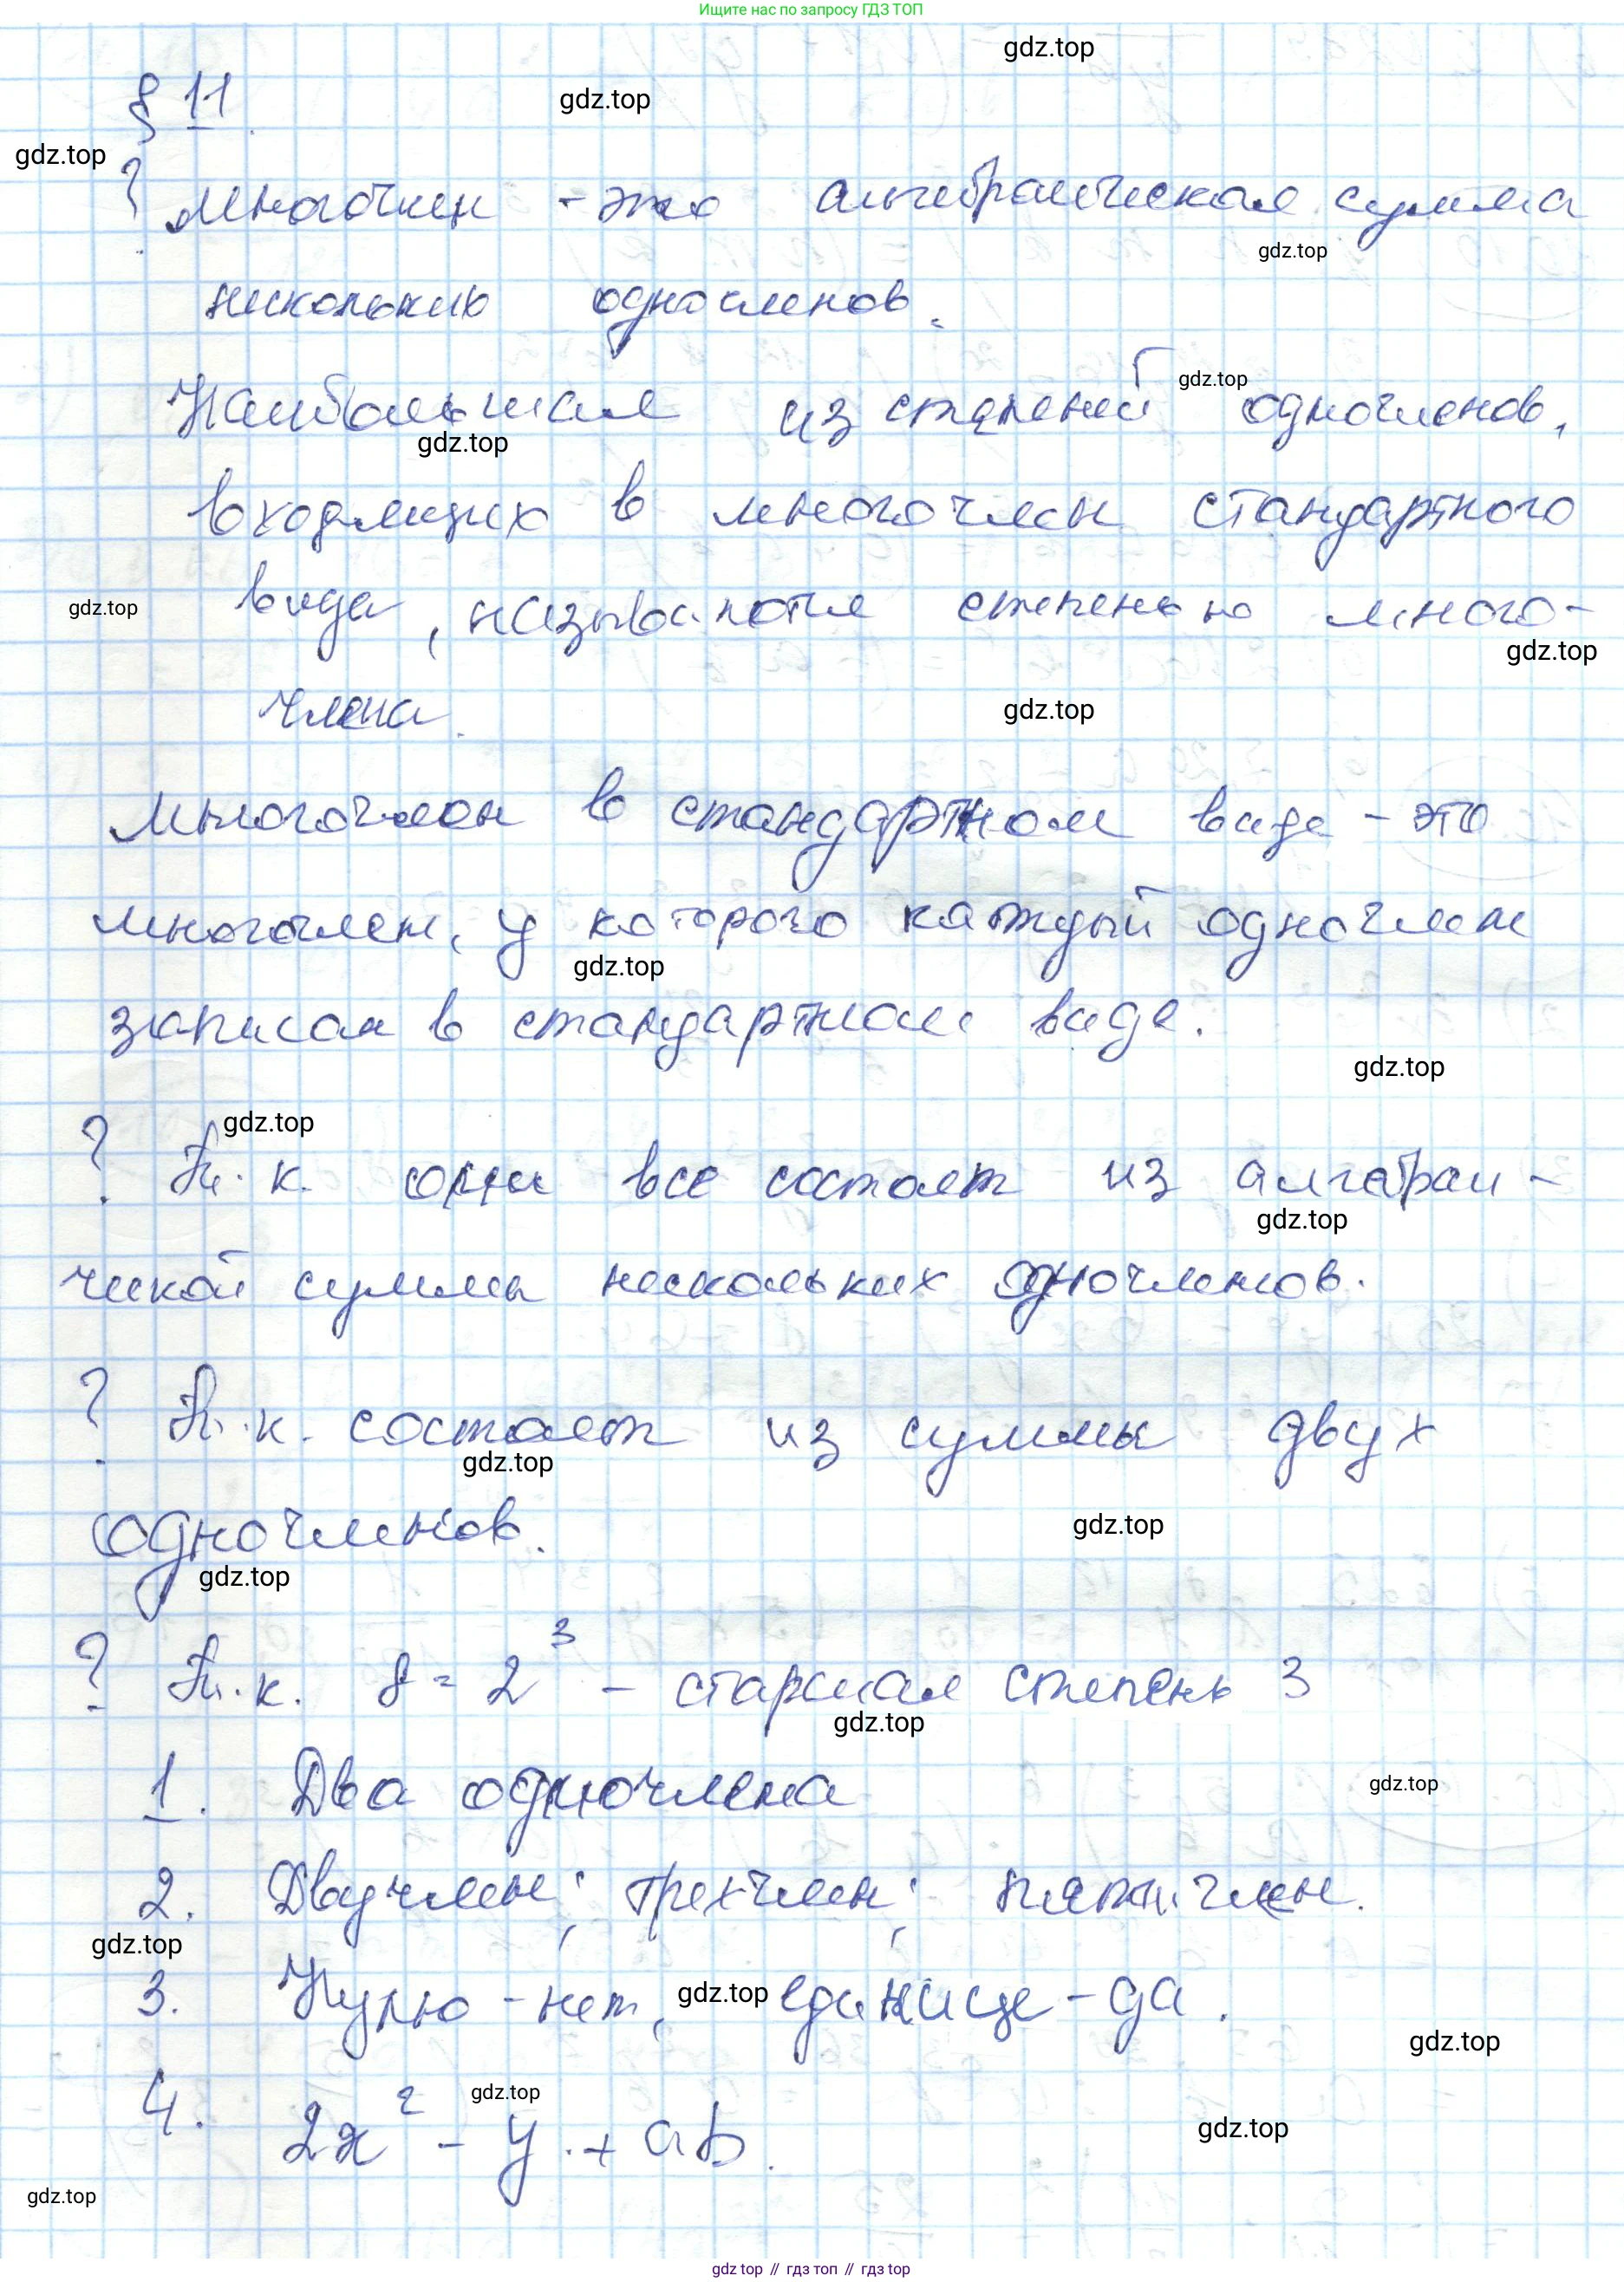 Ищите нас по запросу ГДЗ ТОП
gdz.top
§ 11.
gdz.top
gdz.top
? Многочлен - это алгебраическая сумма
gdz.top
нескольких одночленов.
Наибольшая из степеней одночленов,
gdz.top
gdz.top
входящих в многочлен стандартного
вида, называются степенью много-
gdz.top
gdz.top
члена.
gdz.top
Многочлен в стандартном виде - это
многочлен, у которого каждый одночлен
gdz.top
записан в стандартном виде.
gdz.top
gdz.top
? Т.к. они все состоят из алгебраи-
gdz.top
ческой суммы нескольких одночленов.
? Т.к. состоит из суммы двух
gdz.top
одночленов.
gdz.top
gdz.top
? Т.к. 8 = 2³ - старшая степень 3
gdz.top
1. Два одночлена
gdz.top
2. Двучлен; трехчлен; пятичлен.
gdz.top
3. Нулю - нет, единице - да.
gdz.top
gdz.top
4. 2x² - y + ab.
gdz.top
gdz.top
gdz.top
gdz top // гдз топ // гдз top